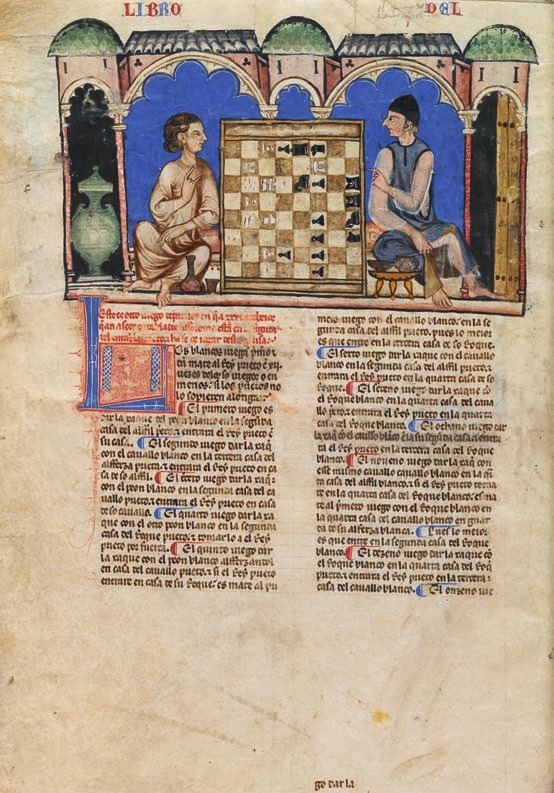 LIBRO DEL
Este es otro iuego
Los blancos iuegan primero
en mate al Rey prieto
menos. si los prietos no
lo sopieren alongar.
El primero iuego es
dar la xaque del peon blanco en la segunda
casa del alffil prieto. entrara el Rey prieto en
su casa. El segundo iuego dar la xaq̃
con el cauallo blanco en la tercera casa del
alfferza prieta. entrara el Rey prieto en ca
sa de so alffil. El tercero iuego dar la xaq̃
con el peon blanco en la segunda casa del ca
uallo prieto. entrara el Rey prieto en casa
de so cauallo. El quarto iuego dar la xa
que con el otro peon blanco en la segunda
casa del Roque prieto. tomarlo a el Rey
prieto por fuerça. El quinto iuego dar
la xaque con el peon blanco alfferzando
en casa del cauallo prieto. si el Rey prieto
entrare en casa de su Roque. es mate al pri
mero iuego con el cauallo blanco. en la se
gunda casa del alffil prieto. pues lo meior
es que entre en la tercera casa de so Roque.
El sexto iuego dar la xaque con el cauallo
blanco en la segunda casa del alffil prieto.
entrara el Rey prieto en la quarta casa de so
Roque. El seteno iuego dar la xaque cõ
el Roque blanco en la quarta casa del caua
llo prieto. entrara el Rey prieto en la quarta
casa del Roque blanco. El ochauo iuego dar
la xaque cõ el cauallo blanco en la segunda casa
el Rey prieto en la tercera casa del Roque
blanco. El noueno iuego dar la xaq̃ con
esse mismo cauallo blanco en la q̃rta
casa del alffil blanco. si el Rey prieto torna
re en la quarta casa del Roque blanco. es ma
te al primero iuego con el Roque blanco en
la quarta casa del cauallo blanco en guar
da de su alfferza blanca. Pues lo meior
es que entre en la segunda casa del Roque
blanco. El dezeno iuego dar la xaque cõ
el Roque blanco en la quarta casa del Roque
prieto. entrara el Rey prieto en la tercera
casa del cauallo blanco. El onzeno iue
go dar la